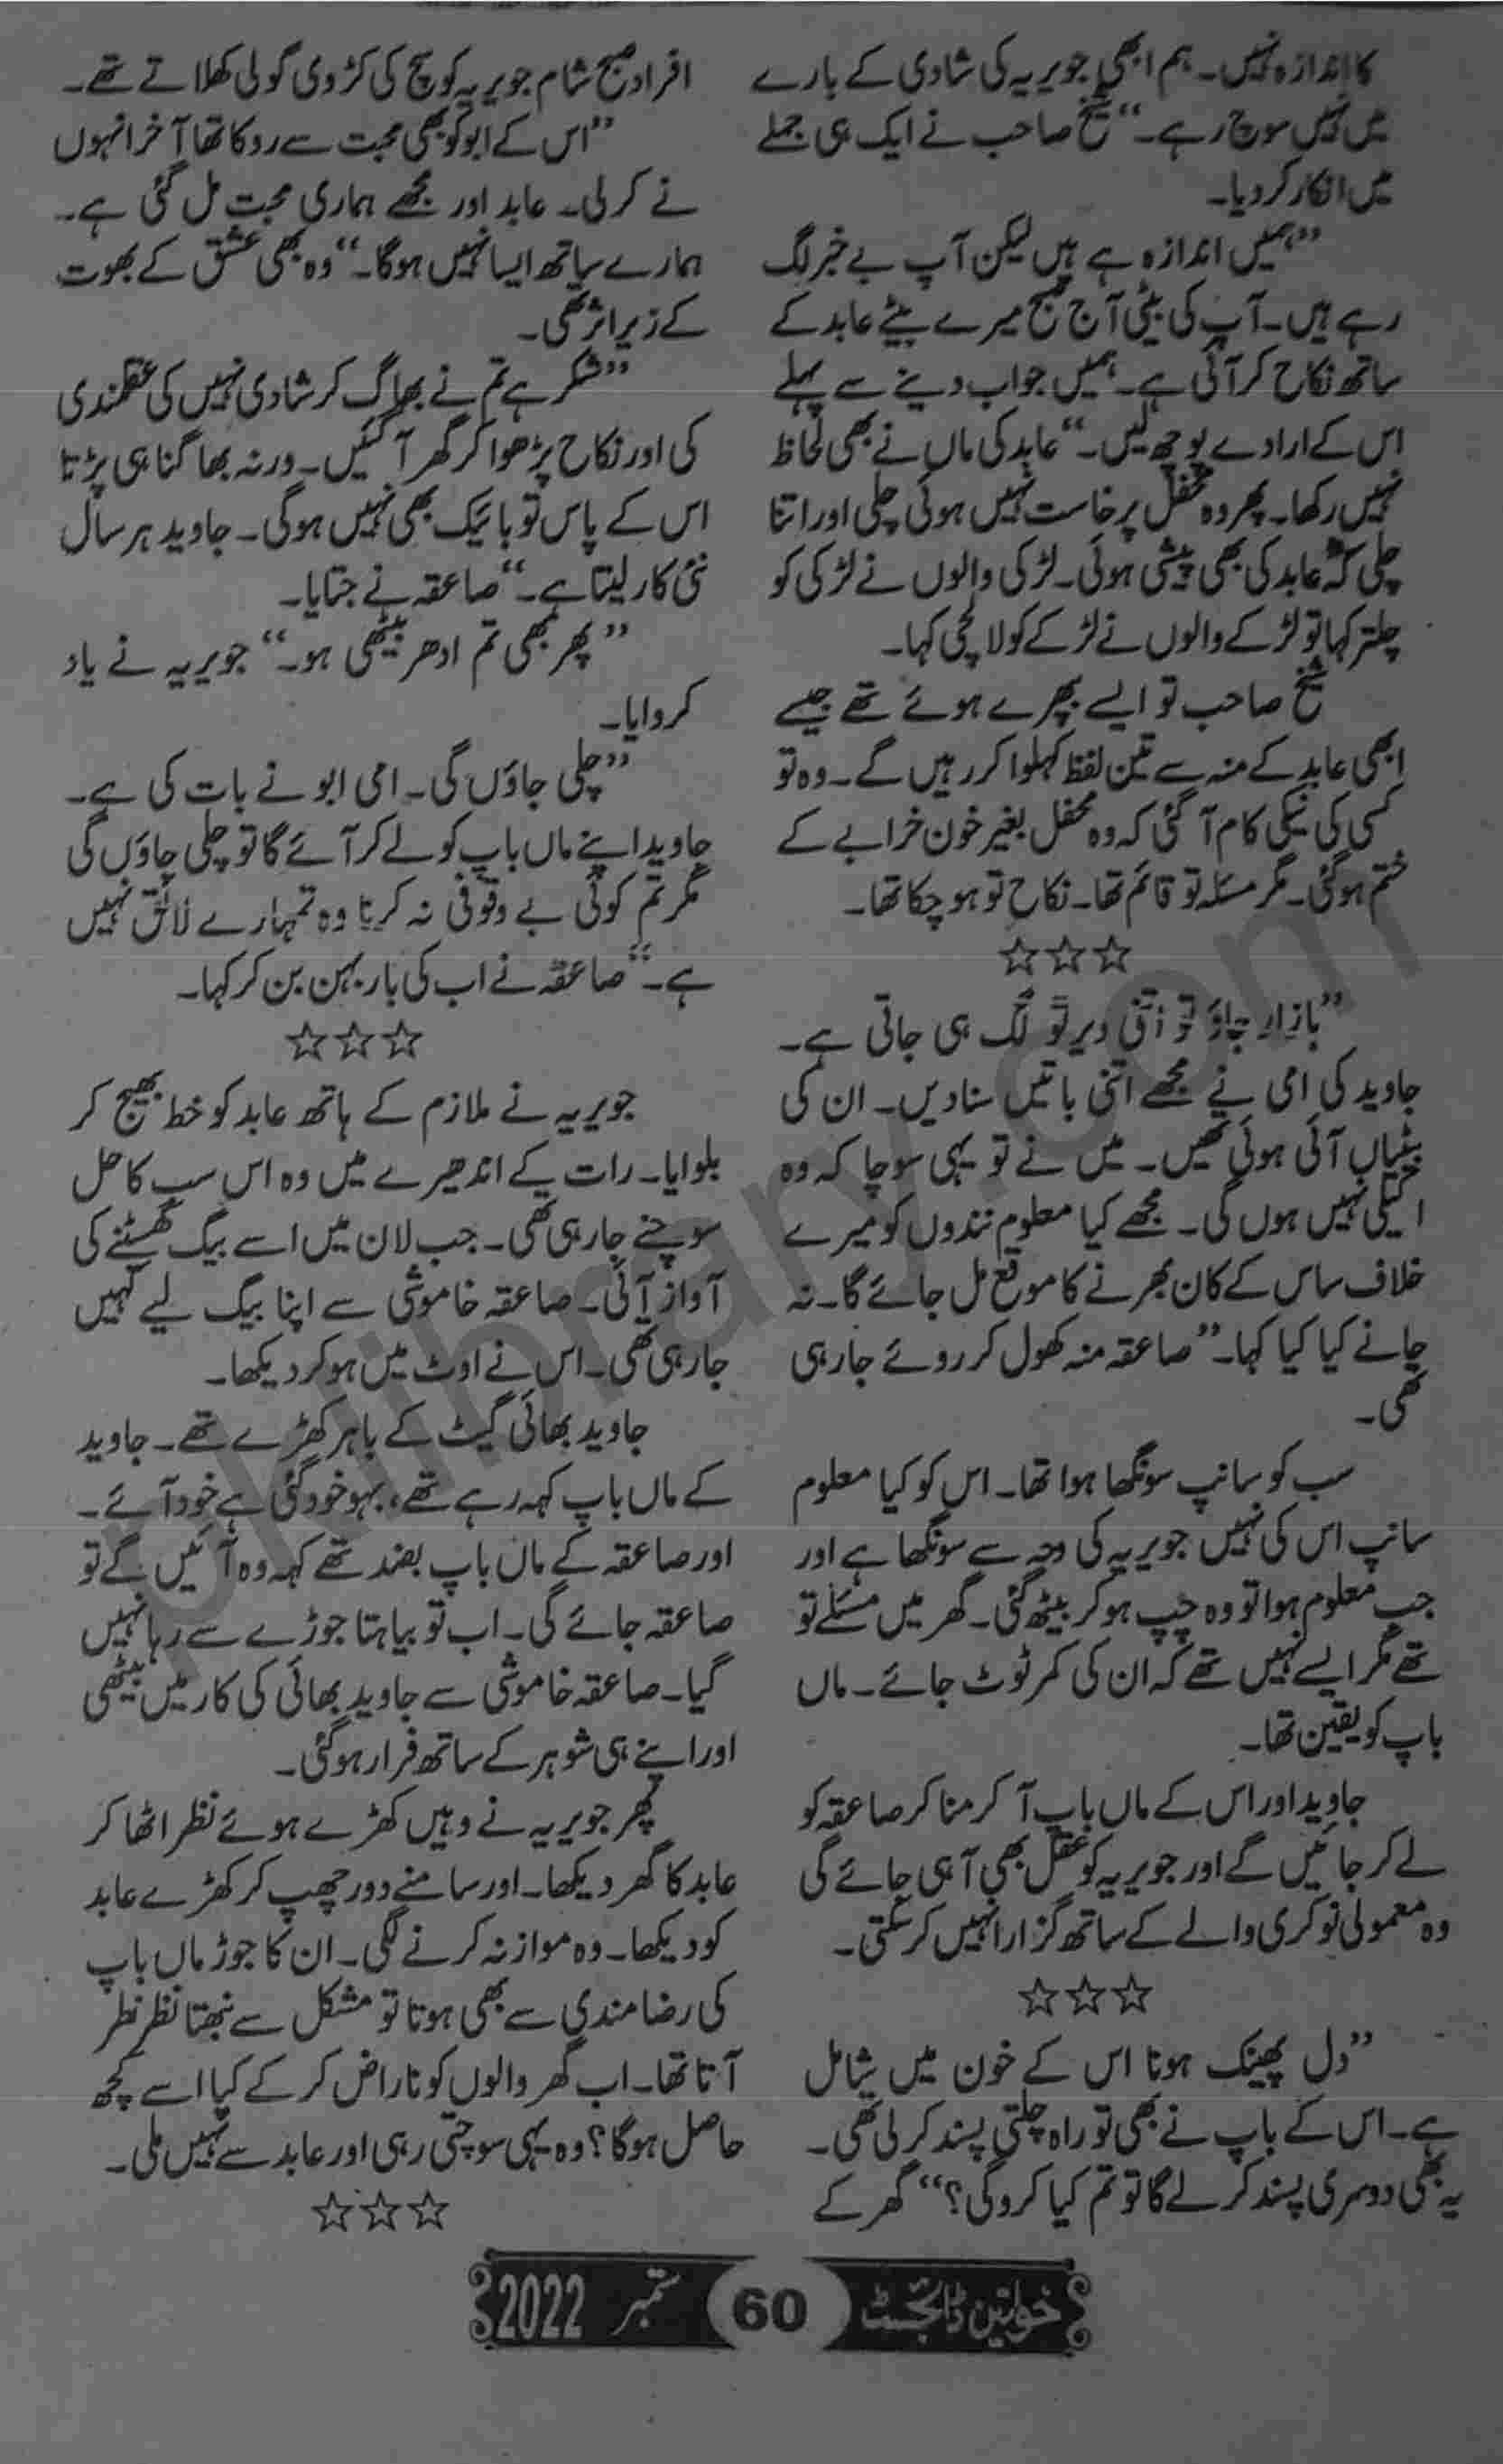 کا اندازہ نہیں۔ ہم ابھی جویریہ کی شادی کے بارے
میں نہیں سوچ رہے۔“ شیخ صاحب نے ایک ہی جملے
میں انکار کردیا۔
”ہمیں اندازہ ہے ہیں لیکن آپ بے خبر لگ
رہے ہیں۔ آپ کی بیٹی آج صبح میرے بیٹے عابد کے
ساتھ نکاح کر آئی ہے۔ ہمیں جواب دینے سے پہلے
اس کے ارادے پوچھ لیں۔“ عابد کی ماں نے بھی لحاظ
نہیں رکھا۔ پھر وہ محفل برخاست نہیں ہوئی چلی اور اتنا
چلی کہ عابد کی بھی پیشی ہوئی۔ لڑکی والوں نے لڑکی کو
چلتر کہا تو لڑکے والوں نے لڑکے کو لالچی کہا۔
شیخ صاحب تو ایسے بپھرے ہوئے تھے جیسے
ابھی عابد کے منہ سے تین لفظ کہلوا کر رہیں گے۔ وہ تو
کسی کی نیکی کام آگئی کہ وہ محفل بغیر خون خرابے کے
ختم ہوگئی۔ مگر مسئلہ تو قائم تھا۔ نکاح تو ہوچکا تھا۔
☆☆☆
”بازار جاؤ تو اتنی دیر تو لگ ہی جاتی ہے۔
جاوید کی امی نے مجھے اتنی باتیں سنادیں۔ ان کی
بیٹیاں آئی ہوئی تھیں۔ میں نے تو یہی سوچا کہ وہ
اکیلی نہیں ہوں گی۔ مجھے کیا معلوم نندوں کو میرے
خلاف ساس کے کان بھرنے کا موقع مل جائے گا۔ نہ
جانے کیا کیا کہا۔“ صاعقہ منہ کھول کر روئے جارہی
تھی۔
سب کو سانپ سونگھا ہوا تھا۔ اس کو کیا معلوم
سانپ اس کی نہیں جویریہ کی وجہ سے سونگھا ہے اور
جب معلوم ہوا تو وہ چپ ہوکر بیٹھ گئی۔ گھر میں مسئلے تو
تھے مگر ایسے نہیں تھے کہ ان کی کمر ٹوٹ جائے۔ ماں
باپ کو یقین تھا۔
جاوید اور اس کے ماں باپ آکر منا کر صاعقہ کو
لے کر جائیں گے اور جویریہ کو عقل بھی آہی جائے گی
وہ معمولی نوکری والے کے ساتھ گزارا نہیں کرسکتی۔
☆☆☆
”دل پھینک ہونا اس کے خون میں شامل
ہے۔ اس کے باپ نے بھی تو راہ چلتی پسند کرلی تھی۔
یہ بھی دوسری پسند کرلے گا تو تم کیا کروگی؟“ گھر کے
افراد صبح شام جویریہ کو سچ کی کڑوی گولی کھلاتے تھے۔
”اس کے ابو کو بھی محبت سے روکا تھا آخر انہوں
نے کرلی۔ عابد اور مجھے ہماری محبت مل گئی ہے۔
ہمارے ساتھ ایسا نہیں ہوگا۔“ وہ بھی عشق کے بھوت
کے زیر اثر تھی۔
”شکر ہے تم نے بھاگ کر شادی نہیں کی عقلمندی
کی اور نکاح پڑھوا کر گھر آگئیں۔ ورنہ بھاگنا ہی پڑتا
اس کے پاس تو بائیک بھی نہیں ہوگی۔ جاوید ہر سال
نئی کار لیتا ہے۔“ صاعقہ نے جتایا۔
”پھر بھی تم ادھر بیٹھی ہو۔“ جویریہ نے یاد
کروایا۔
”چلی جاؤں گی۔ امی ابو نے بات کی ہے۔
جاوید اپنے ماں باپ کو لے کر آئے گا تو چلی جاؤں گی
مگر تم کوئی بے وقوفی نہ کرنا وہ تمہارے لائق نہیں
ہے۔“ صاعقہ نے اب کی بار بہن بن کر کہا۔
☆☆☆
جویریہ نے ملازم کے ہاتھ عابد کو خط بھیج کر
بلوایا۔ رات کے اندھیرے میں وہ اس سب کا حل
سوچنے جارہی تھی۔ جب لان میں اسے بیگ گھسٹنے کی
آواز آئی۔ صاعقہ خاموشی سے اپنا بیگ لیے کہیں
جارہی تھی۔ اس نے اوٹ میں ہوکر دیکھا۔
جاوید بھائی گیٹ کے باہر کھڑے تھے۔ جاوید
کے ماں باپ کہہ رہے تھے، بہو خود گئی ہے خود آئے۔
اور صاعقہ کے ماں باپ بضد تھے کہ وہ آئیں گے تو
صاعقہ جائے گی۔ اب تو بیاہتا جوڑے سے رہا نہیں
گیا۔ صاعقہ خاموشی سے جاوید بھائی کی کار میں بیٹھی
اور اپنے ہی شوہر کے ساتھ فرار ہوگئی۔
پھر جویریہ نے وہیں کھڑے ہوئے نظر اٹھا کر
عابد کا گھر دیکھا۔ اور سامنے دور چھپ کر کھڑے عابد
کو دیکھا۔ وہ موازنہ کرنے لگی۔ ان کا جوڑ ماں باپ
کی رضامندی سے بھی ہوتا تو مشکل سے نبھتا نظر نظر
آتا تھا۔ اب گھر والوں کو ناراض کرکے کیا اسے کچھ
حاصل ہوگا؟ وہ یہی سوچتی رہی اور عابد سے نہیں ملی۔
☆☆☆
خواتین ڈائجسٹ 60 ستمبر 2022